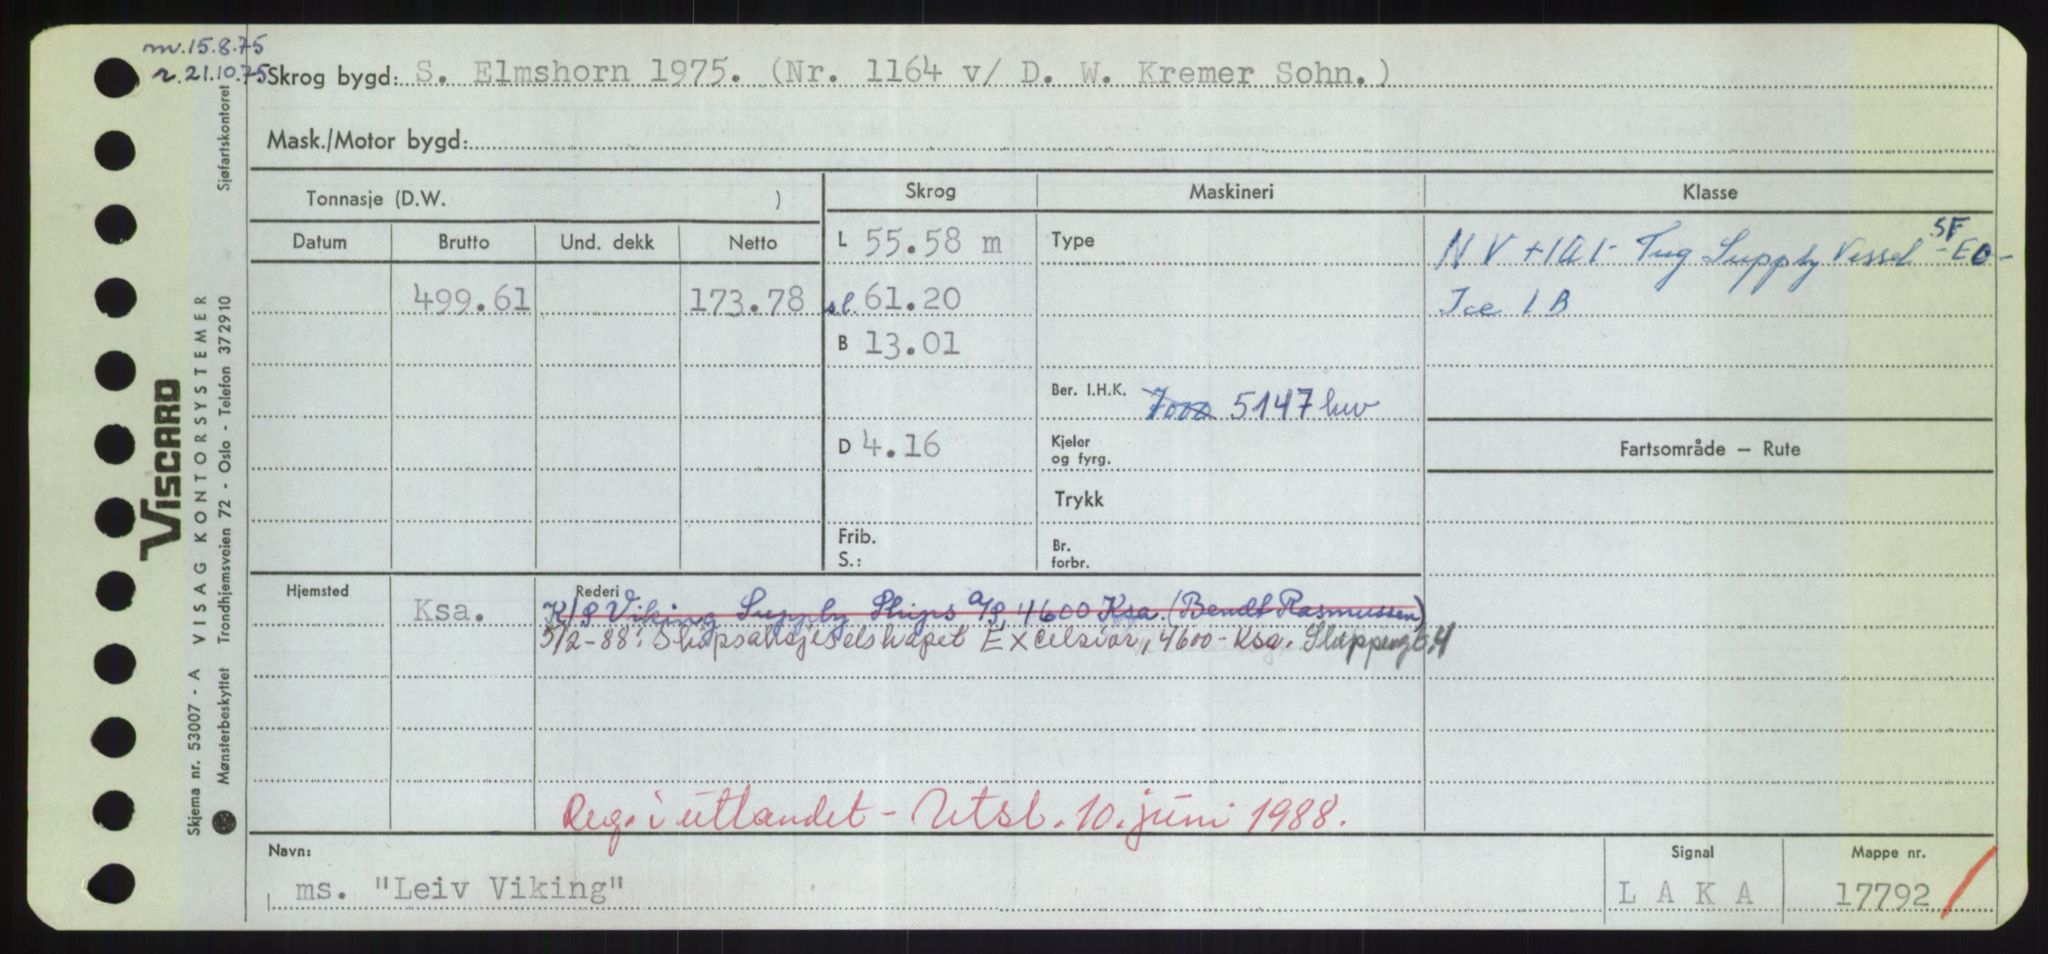 mv. 15.8.75
r. 21.10.75
Skrog bygd: S. Elmshorn 1975. (Nr. 1164 v/ D. W. Kremer Sohn.)
Mask./Motor bygd:
Tonnasje (D.W. )
Skrog
Maskineri
Klasse
Datum
Brutto
Und. dekk
Netto
L 55.58 m
Type
NV +1A1- Tug Supply Vessel SF -EO-
499.61
173.78
sl. 61.20
Ice 1B
B 13.01
Ber. I.H.K. 7000 5147 hw
Fartsområde — Rute
D 4.16
Kjeler
og fyrg.
Trykk
Frib.
S.:
Br.
forbr.
Hjemsted
Ksa.
Rederi
K/S Viking Supply Ships a/s, 4600 Ksa. (Bendt Rasmussen)
5/2-88: Skipsaksjeselskapet Excelsior, 4600-Ksa.
Reg. i utlandet - Utsl. 10. juni 1988.
Navn:
ms. "Leiv Viking"
Signal
L A K A
Mappe nr.
17792
VISCARD
Skjema nr. 53007 - A VISAG KONTORSYSTEMER
Mønsterbeskyttet Trondhjemsveien 72 - Oslo - Telefon 372910 Sjøfartskontoret